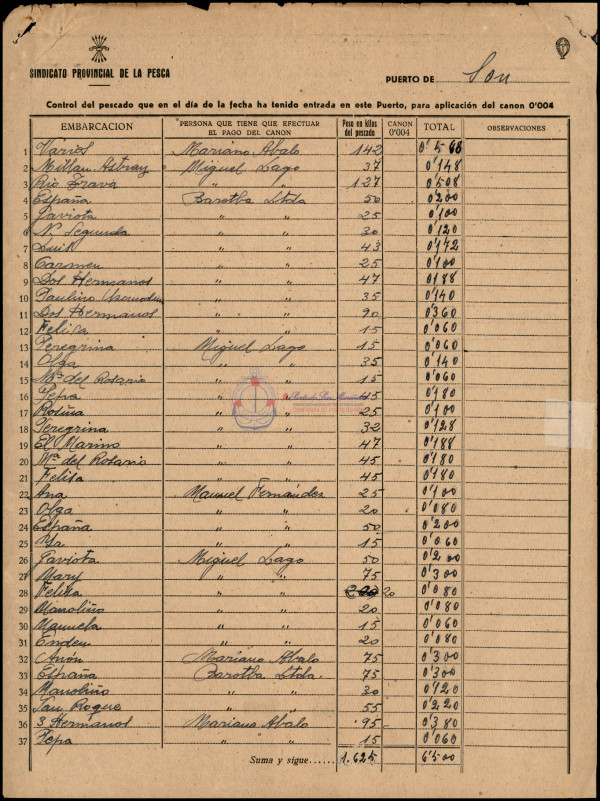 SINDICATO PROVINCIAL DE LA PESCA
PUERTO DE Son
Control del pescado que en el día de la fecha ha tenido entrada en este Puerto, para aplicación del canon 0'004
EMBARCACION PERSONA QUE TIENE QUE EFECTUAR EL PAGO DEL CANON Peso en kilos del pescado CANON 0'004 TOTAL OBSERVACIONES
1 Varios Mariano Abalo 142 0'568
2 Millan Astray Miguel Lago 37 0'148
3 Rio Trava " " 127 0'508
4 España Barotba Ltda 50 0'200
5 Gaviota " " 25 0'100
6 N. Segunda " " 30 0'120
7 Luis " " 43 0'172
8 Carmen " " 25 0'100
9 Dos Hermanos " " 47 0'188
10 Paulino " " 35 0'140
11 Dos Hermanos " " 90 0'360
12 Felisa " " 15 0'060
13 Peregrina Miguel Lago 15 0'060
14 Olga " " 35 0'140
15 Mª del Rosario " " 15 0'060
16 Pepa " " 45 0'180
17 Rosiña " " 25 0'100
18 Peregrina " " 32 0'128
19 El Marino " " 47 0'188
20 Mª del Rosario " " 45 0'180
21 Felisa " " 45 0'180
22 Ana Manuel Fernández 25 0'100
23 Olga " " 20 0'080
24 España " " 50 0'200
25 " " 15 0'060
26 Gaviota Miguel Lago 50 0'200
27 Mary " " 75 0'300
28 Felisa " " 20 0'080
29 Manoliño " " 20 0'080
30 Manuela " " 15 0'060
31 " " 20 0'080
32 Mariano Abalo 75 0'300
33 España Barotba Ltda. 75 0'300
34 Manoliño " " 30 0'120
35 San Roque " " 55 0'220
36 3 Hermanos Mariano Abalo 95 0'380
37 Pepa " " 15 0'060
Suma y sigue...... 1.625 6'500